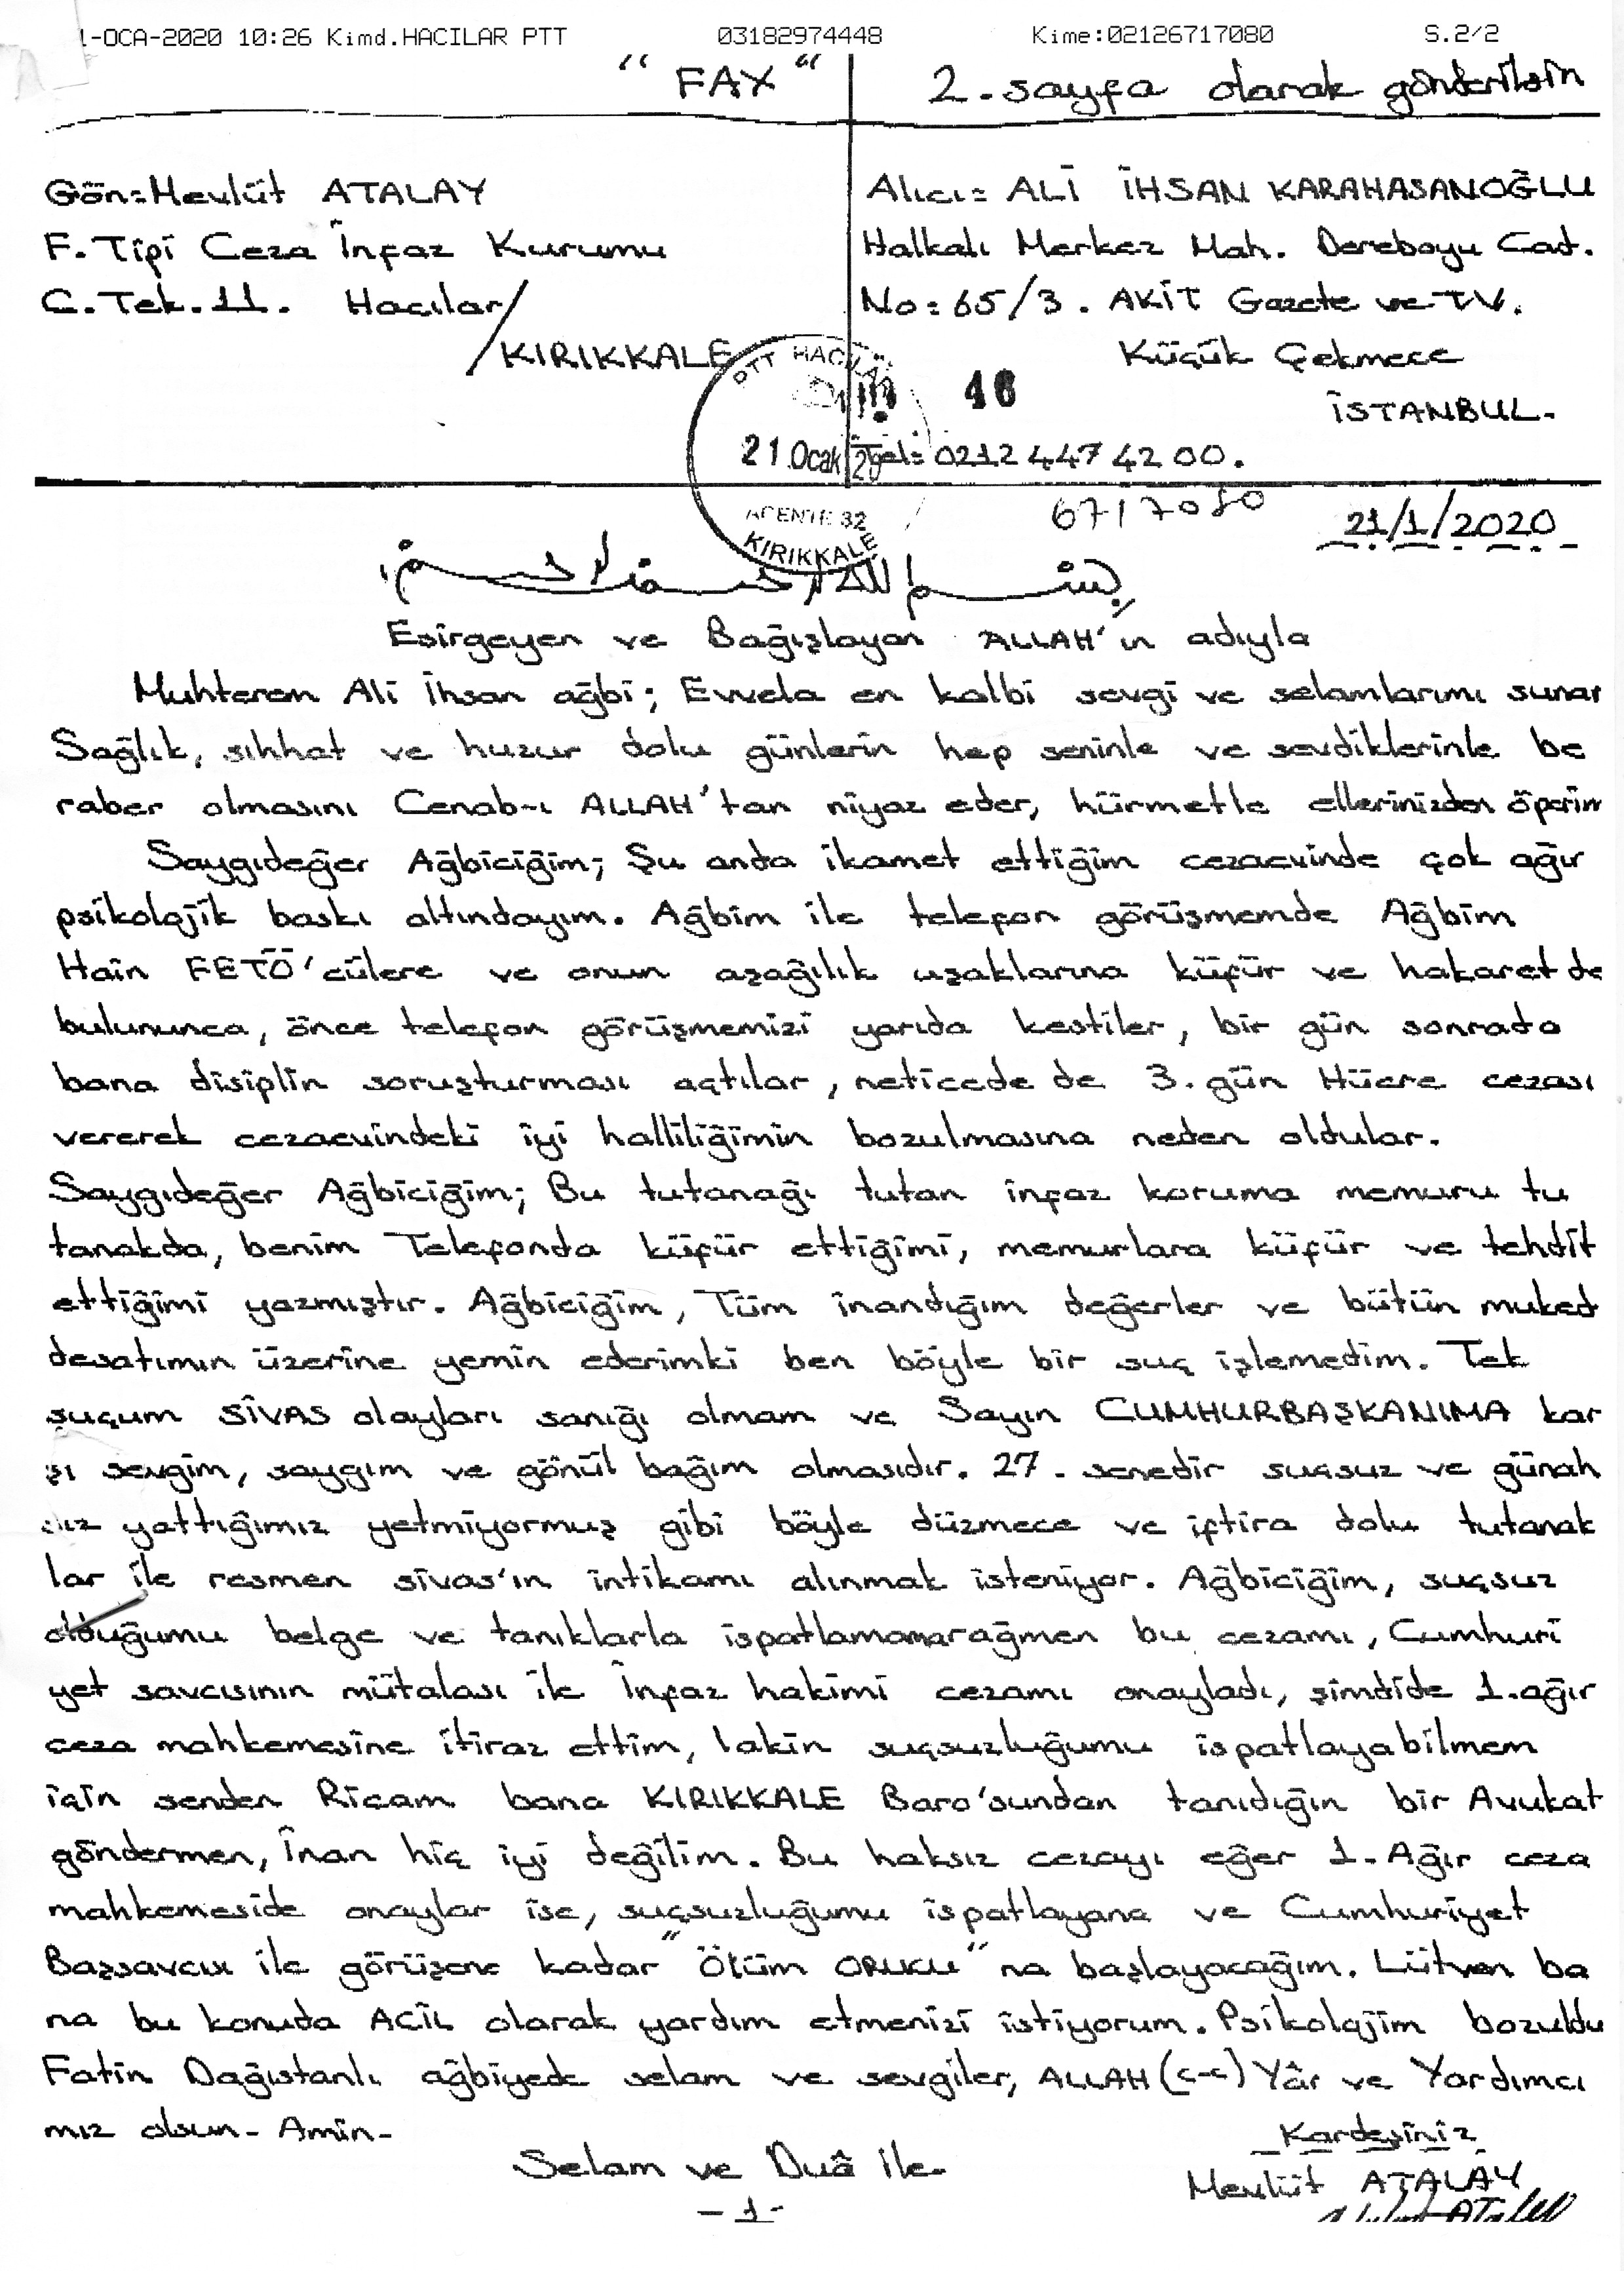 1-OCA-2020 10:26 Kimd.HACILAR PTT 03182974448 Kime:02126717080 S.2/2
"FAX" 2.sayfa olarak gönderilsin
Gön=Mevlüt ATALAY
F.Tipi Ceza İnfaz Kurumu
C.Tek.11. Hacılar/
KIRIKKALE
Alıcı= ALİ İHSAN KARAHASANOĞLU
Halkalı Merkez Mah. Dereboyu Cad.
No:65/3. AKİT Gazete ve TV.
Küçük Çekmece
İSTANBUL.
Tel= 0212 447 42 00.
PTT HACILAR
16
21 Ocak
ACENTE 32
KIRIKKALE
6717080
21/1/2020
بسم الله الرحمن الرحيم
Esirgeyen ve Bağışlayan ALLAH'ın adıyla
Muhterem Ali İhsan ağbi; Evvela en kalbi sevgi ve selamlarımı sunar
Sağlık, sıhhat ve huzur dolu günlerin hep seninle ve sevdiklerinle be
raber olmasını Cenab-ı ALLAH'tan niyaz eder, hürmetle ellerinizden öperim
Saygıdeğer Ağbiciğim; Şu anda ikamet ettiğim cezaevinde çok ağır
psikolojik baskı altındayım. Ağbim ile telefon görüşmemde Ağbim
Hain FETÖ'cülere ve onun aşağılık uşaklarına küfür ve hakaret de
bulununca, önce telefon görüşmemizi yarıda kestiler, bir gün sonrada
bana disiplin soruşturması açtılar, neticede de 3.gün Hücre cezası
vererek cezaevindeki iyi halliliğimin bozulmasına neden oldular.
Saygıdeğer Ağbiciğim; Bu tutanağı tutan infaz koruma memuru tu
tanakda, benim Telefonda küfür ettiğimi, memurlara küfür ve tehdit
ettiğimi yazmıştır. Ağbiciğim, Tüm inandığım değerler ve bütün muked
desatımın üzerine yemin ederimki ben böyle bir suç işlemedim. Tek
suçum SİVAS olayları sanığı olmam ve Sayın CUMHURBAŞKANIMA kar
şı sevgim, saygım ve gönül bağım olmasıdır. 27. senedir suçsuz ve günah
sız yattığımız yetmiyormuş gibi böyle düzmece ve iftira dolu tutanak
lar ile resmen sivas'ın intikamı alınmak isteniyor. Ağbiciğim, suçsuz
olduğumu belge ve tanıklarla ispatlamamarağmen bu cezamı, Cumhuri
yet savcısının mütalası ile İnfaz hakimi cezamı onayladı, şimdide 1.ağır
ceza mahkemesine itiraz ettim, lakin suçsuzluğumu ispatlayabilmem
için senden Ricam bana KIRIKKALE Baro'sundan tanıdığın bir Avukat
göndermen, İnan hiç iyi değilim. Bu haksız cezayı eğer 1.Ağır ceza
mahkemeside onaylar ise, suçsuzluğumu ispatlayana ve Cumhuriyet
Başsavcısı ile görüşene kadar "Ölüm ORUCU"na başlayacağım. Lütven ba
na bu konuda ACİL olarak yardım etmenizi istiyorum. Psikolojim bozuldu
Fatin Dağıstanlı ağbiyede selam ve sevgiler, ALLAH (c-c) Yâr ve Yardımcı
mız olsun- Amin-
Selam ve Duâ ile
Kardeşiniz
Mevlüt ATALAY
-1-